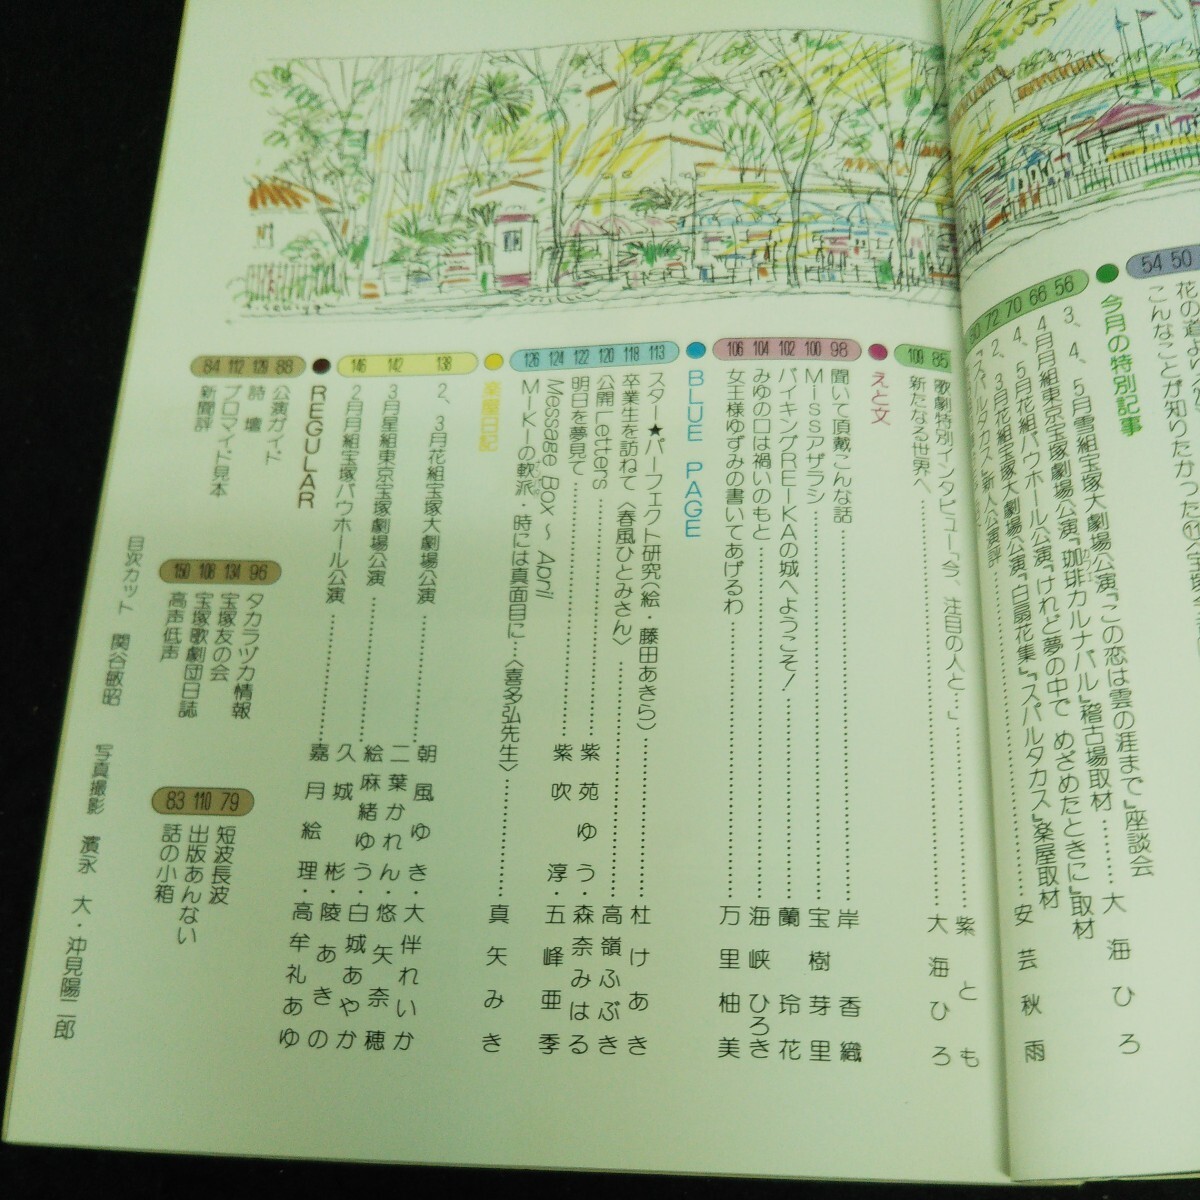 54 50
花の道より
こんなことが知りたかった
今月の特別記事
72 70 66 56
3、4、5月雪組宝塚大劇場公演『この恋は雲の涯まで』座談会
4月月組東京宝塚劇場公演『珈琲カルナバル』稽古場取材……大海ひろ
4、5月花組バウホール公演『けれど夢の中で めざめたときに』取材
2、3月花組宝塚大劇場公演『白扇花集』『スパルタカス』楽屋取材
『スパルタカス』新人公演評……安芸秋雨
109 85
歌劇特別インタビュー「今、注目の人と…」……紫とも
新たなる世界へ……大海ひろ
えと文
106 104 102 100 98
聞いて頂戴こんな話……岸香織
Missアザラシ……宝樹芽里
バイキングREIKAの城へようこそ!……蘭玲花
みゆの口は禍いのもと……海峡ひろき
女王様ゆずみの書いてあげるわ……万里柚美
BLUE PAGE
126 124 122 120 118 113
スター★パーフェクト研究(絵・藤田あきら)……杜けあき
卒業生を訪ねて〈春風ひとみさん〉……高嶺ふぶき
公開Letters……紫苑ゆう・森奈みはる
明日を夢見て……紫吹淳・五峰亜季
Message Box〜April
MIKIの軟派・時には真面目に…〈喜多弘先生〉……真矢みき
楽屋日記
146 142 138
2、3月花組宝塚大劇場公演……朝風ゆき・大伴れいか
二葉かれん・悠矢奈穂
3月星組東京宝塚劇場公演……絵麻緒ゆう・白城あやか
久城彬・陵あきの
2月月組宝塚バウホール公演……嘉月絵理・高牟礼あゆ
REGULAR
84 112 129 88
公演ガイド
詩壇
ブロマイド見本
新聞評
150 108 134 96
タカラヅカ情報
宝塚友の会
宝塚歌劇団日誌
高声低声
83 110 79
短波長波
出版あんない
話の小箱
目次カット 関谷敏昭 写真撮影 濱永 大・沖見陽二郎